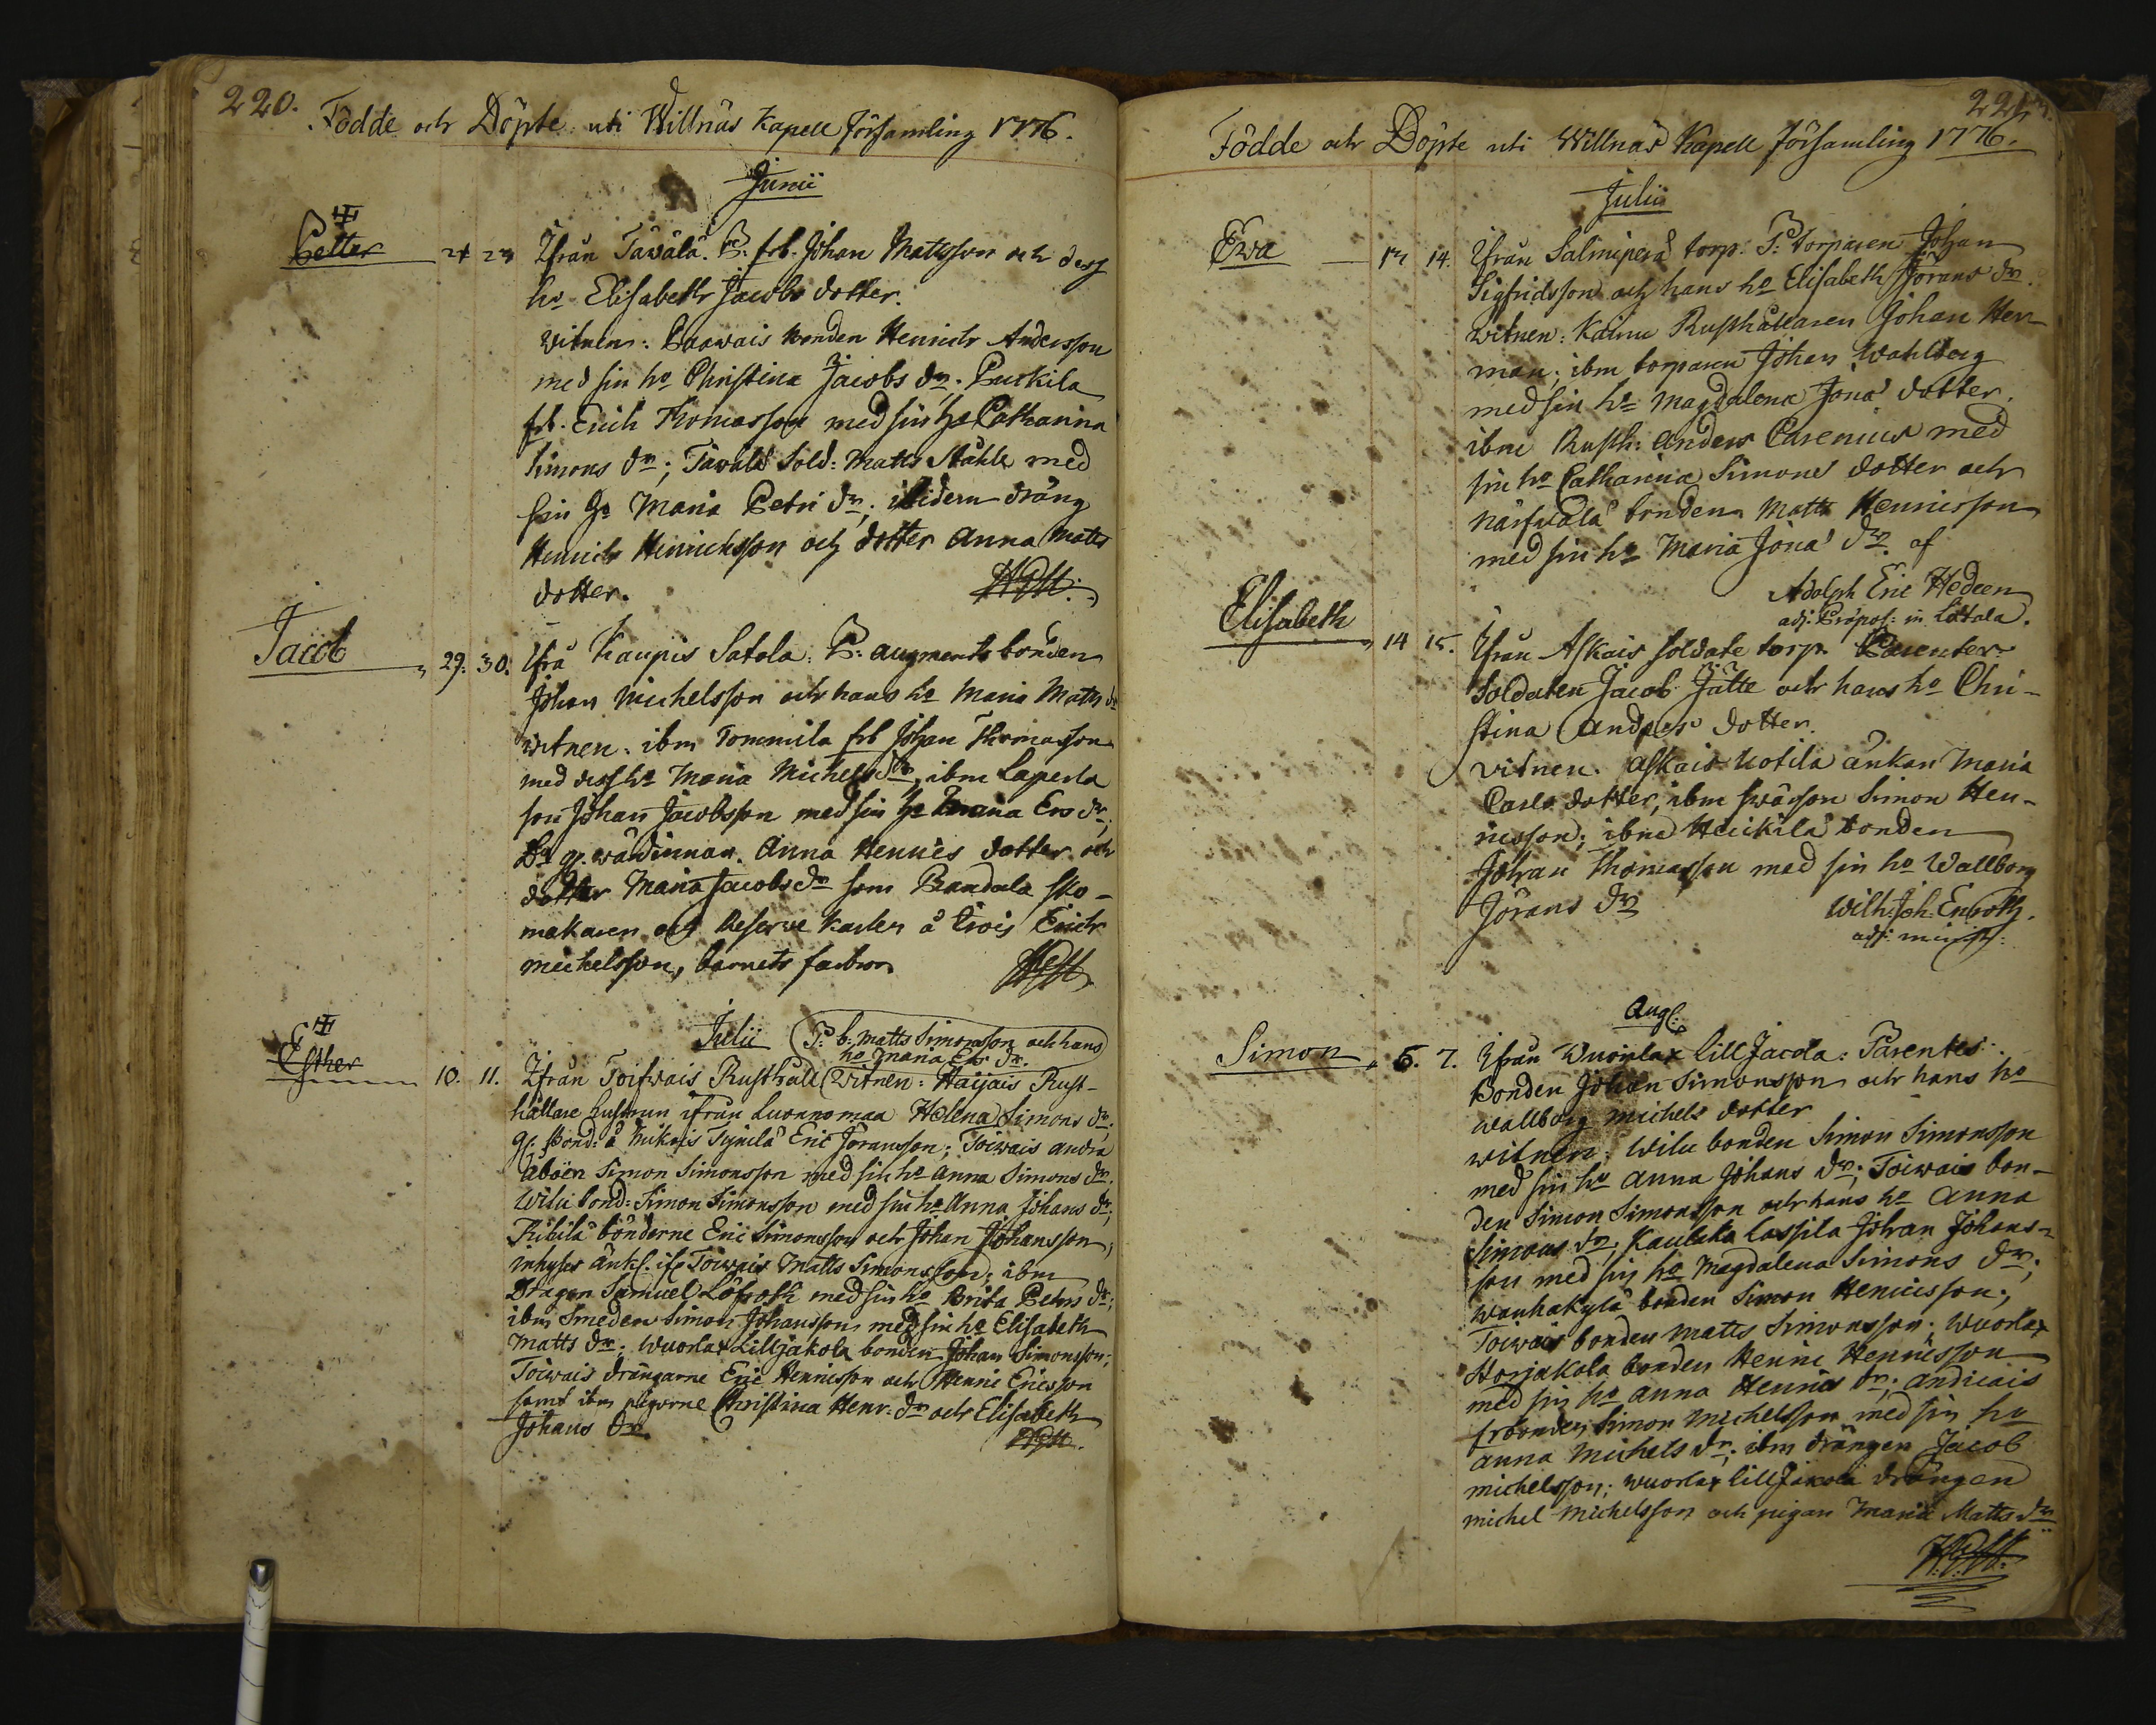 220.
Födde och Döpte uti Willnäs Kapell församling 1776.
Junii
Petter 23 Ifrån Tawala. P: frb. Johan Mattsson och dess
ho Elisabeth Jacobs dotter.
Witnen: bonden Henrich Andersson
med sin ho Christina Jacobs dr. Purkila
frb. Erich Thomasson med sin ho Catharina
Simons dr; Tawala Sold: Matts Ståhle med
sin ho Maria Petri dr; ibidem dräng
Henrich Henrichsson och dotter Anna Matts
dotter.
Jacob 29. 30. Ifrå Kaupis Satola. P: augments bonden
Johan Michelsson och hans ho Maria Matts dr
witnen: ibm Tommila frb Johan Thomasson
med dess ho Maria Michels dr, ibm Laperla
son Johan Jacobsson med sin ho Maria Ers dr;
wärdinnan Anna Henrics dotter och
dotter Maria Jacobs dr som Pandala sko-
makaren och Reserve Karlen å Erich
Michelsson, barnets farbror
Julii
P: b: Matts Simonsson och hans
ho Maria Er dr.
Esther 10. 11. Ifrån Toiwais Rusthåll witnen: Haijais Rust-
hållare hustrun ifrån Luonnomaa Helena Simons dr;
bond: å Eric Jöransson; Toiwais andra
åboen Simon Simonsson med sin ho Anna Simons dr.
Wilu bond: Simon Simonsson med sin ho Anna Johans dr;
bönderne Eric Simonsson och Johan Johansson;
inhyses Toiwais Matts Simonsson; ibm
Dragon Samuel Löfroth med sin ho Brita Petrs dr;
ibm Smeden Simon Johansson med sin ho Elisabeth
Matts dr; Wuorlax Lilljakola bonden Johan Simonsson;
Toiwais drängarne Eric Henricsson och Henric Ericsson
samt ibm pigorne Christina Henr: dr och Elisabeth
Johans dr
Födde och Döpte uti Willnäs Kapell församling 1776.
Julii
Ewa 13 14. Ifrån Salmiperä torp: P: torparen Johan
Sigfridsson och hans ho Elisabeth Jörans dr.
witnen: Kainu Rusthållaren Johan Her-
man; ibm torparen Johan Wahlberg
med sin ho Magdalena Jona dotter.
ibm Rusth: Anders Carenius med
sin ho Catharina Simons dotter och
bonden Matts Henricsson
med sin ho Maria Jona dr. af
Adolph Eric Hedeen
adj: Præpos: in Lættala.
Elisabeth 14 15. Ifrån Askais soldate torp. Parenter
Soldaten Jacob Jätte och hans ho Chri-
stina Anders dotter.
witnen. Askais Uotila änkan Maria
Carls dotter, ibm swärson Simon Hen-
ricsson; ibm Heickilä bonden
Johan Thomasson med sin ho Wallborg
Jörans dr
Wilh: Joh: Enroth.
adj: minist:
Aug:
Simon 6. 7. Ifrån Wuorlax Lill Jacola: Parentes
Bonden Johan Simonsson och hans ho
Wallborg Michels dotter
witnen: Wilu bonden Simon Simonsson
med sin ho Anna Johans dr; Toiwais bon-
den Simon Simonsson och hans ho Anna
Simons dr; Lassila Johan Johans-
son med sin ho Magdalena Simons dr;
Wanhakylä bonden Simon Henricsson;
Toiwais bonden Matts Simonsson; Wuorlax
Storjakola bonden Henric Henricsson
med sin ho Anna Henrics dr; Andicais
frbonden Simon Michelsson med sin ho
Anna Michels dr; ibm drängen Jacob
Michelsson; Wuorlax LillJakola drängen
Michel Michelsson och pigan Maria Matts dr